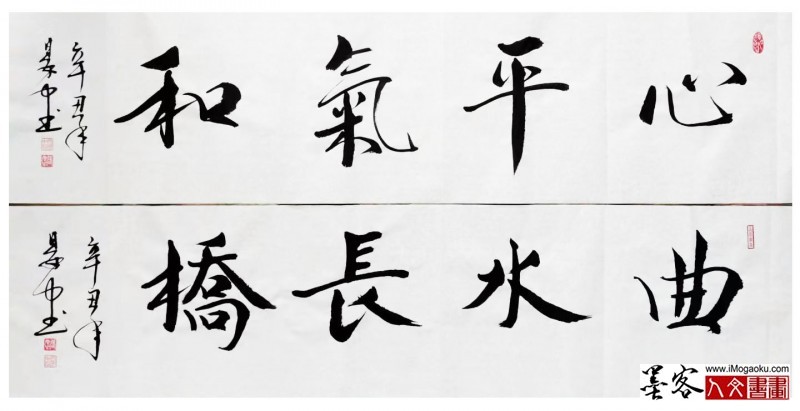 心平氣和
辛丑年
曲水長橋
辛丑年
墨客
www.iMogaoku.com
人文書畫